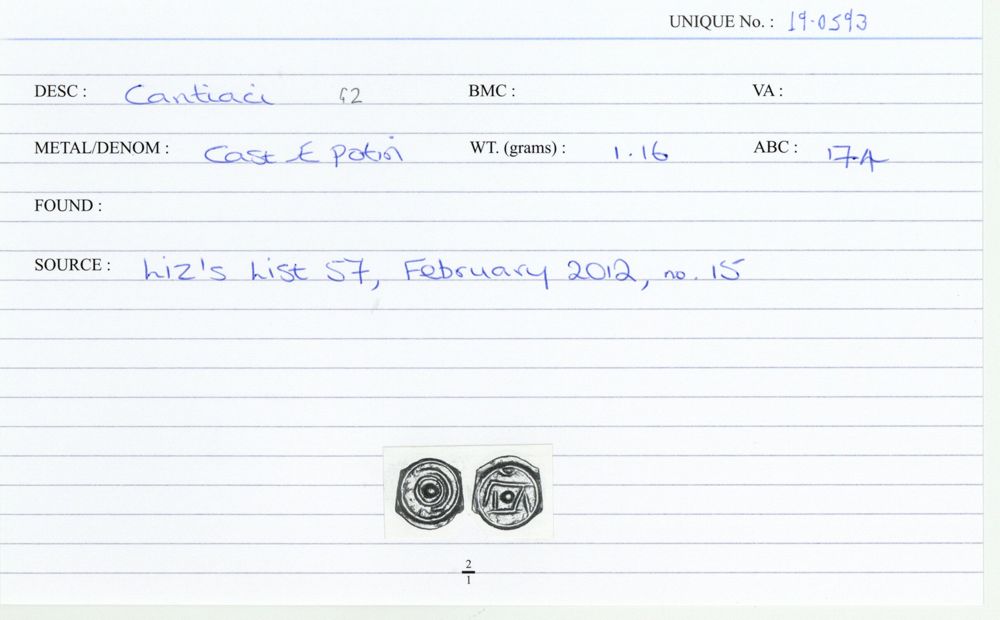 UNIQUE No. : 19.0593
DESC : Cantiaci G2 BMC : VA :
METAL/DENOM : Cast Æ potin WT. (grams) : 1.16 ABC : 174
FOUND :
SOURCE : Liz's List 57, February 2012, no. 15
2
1